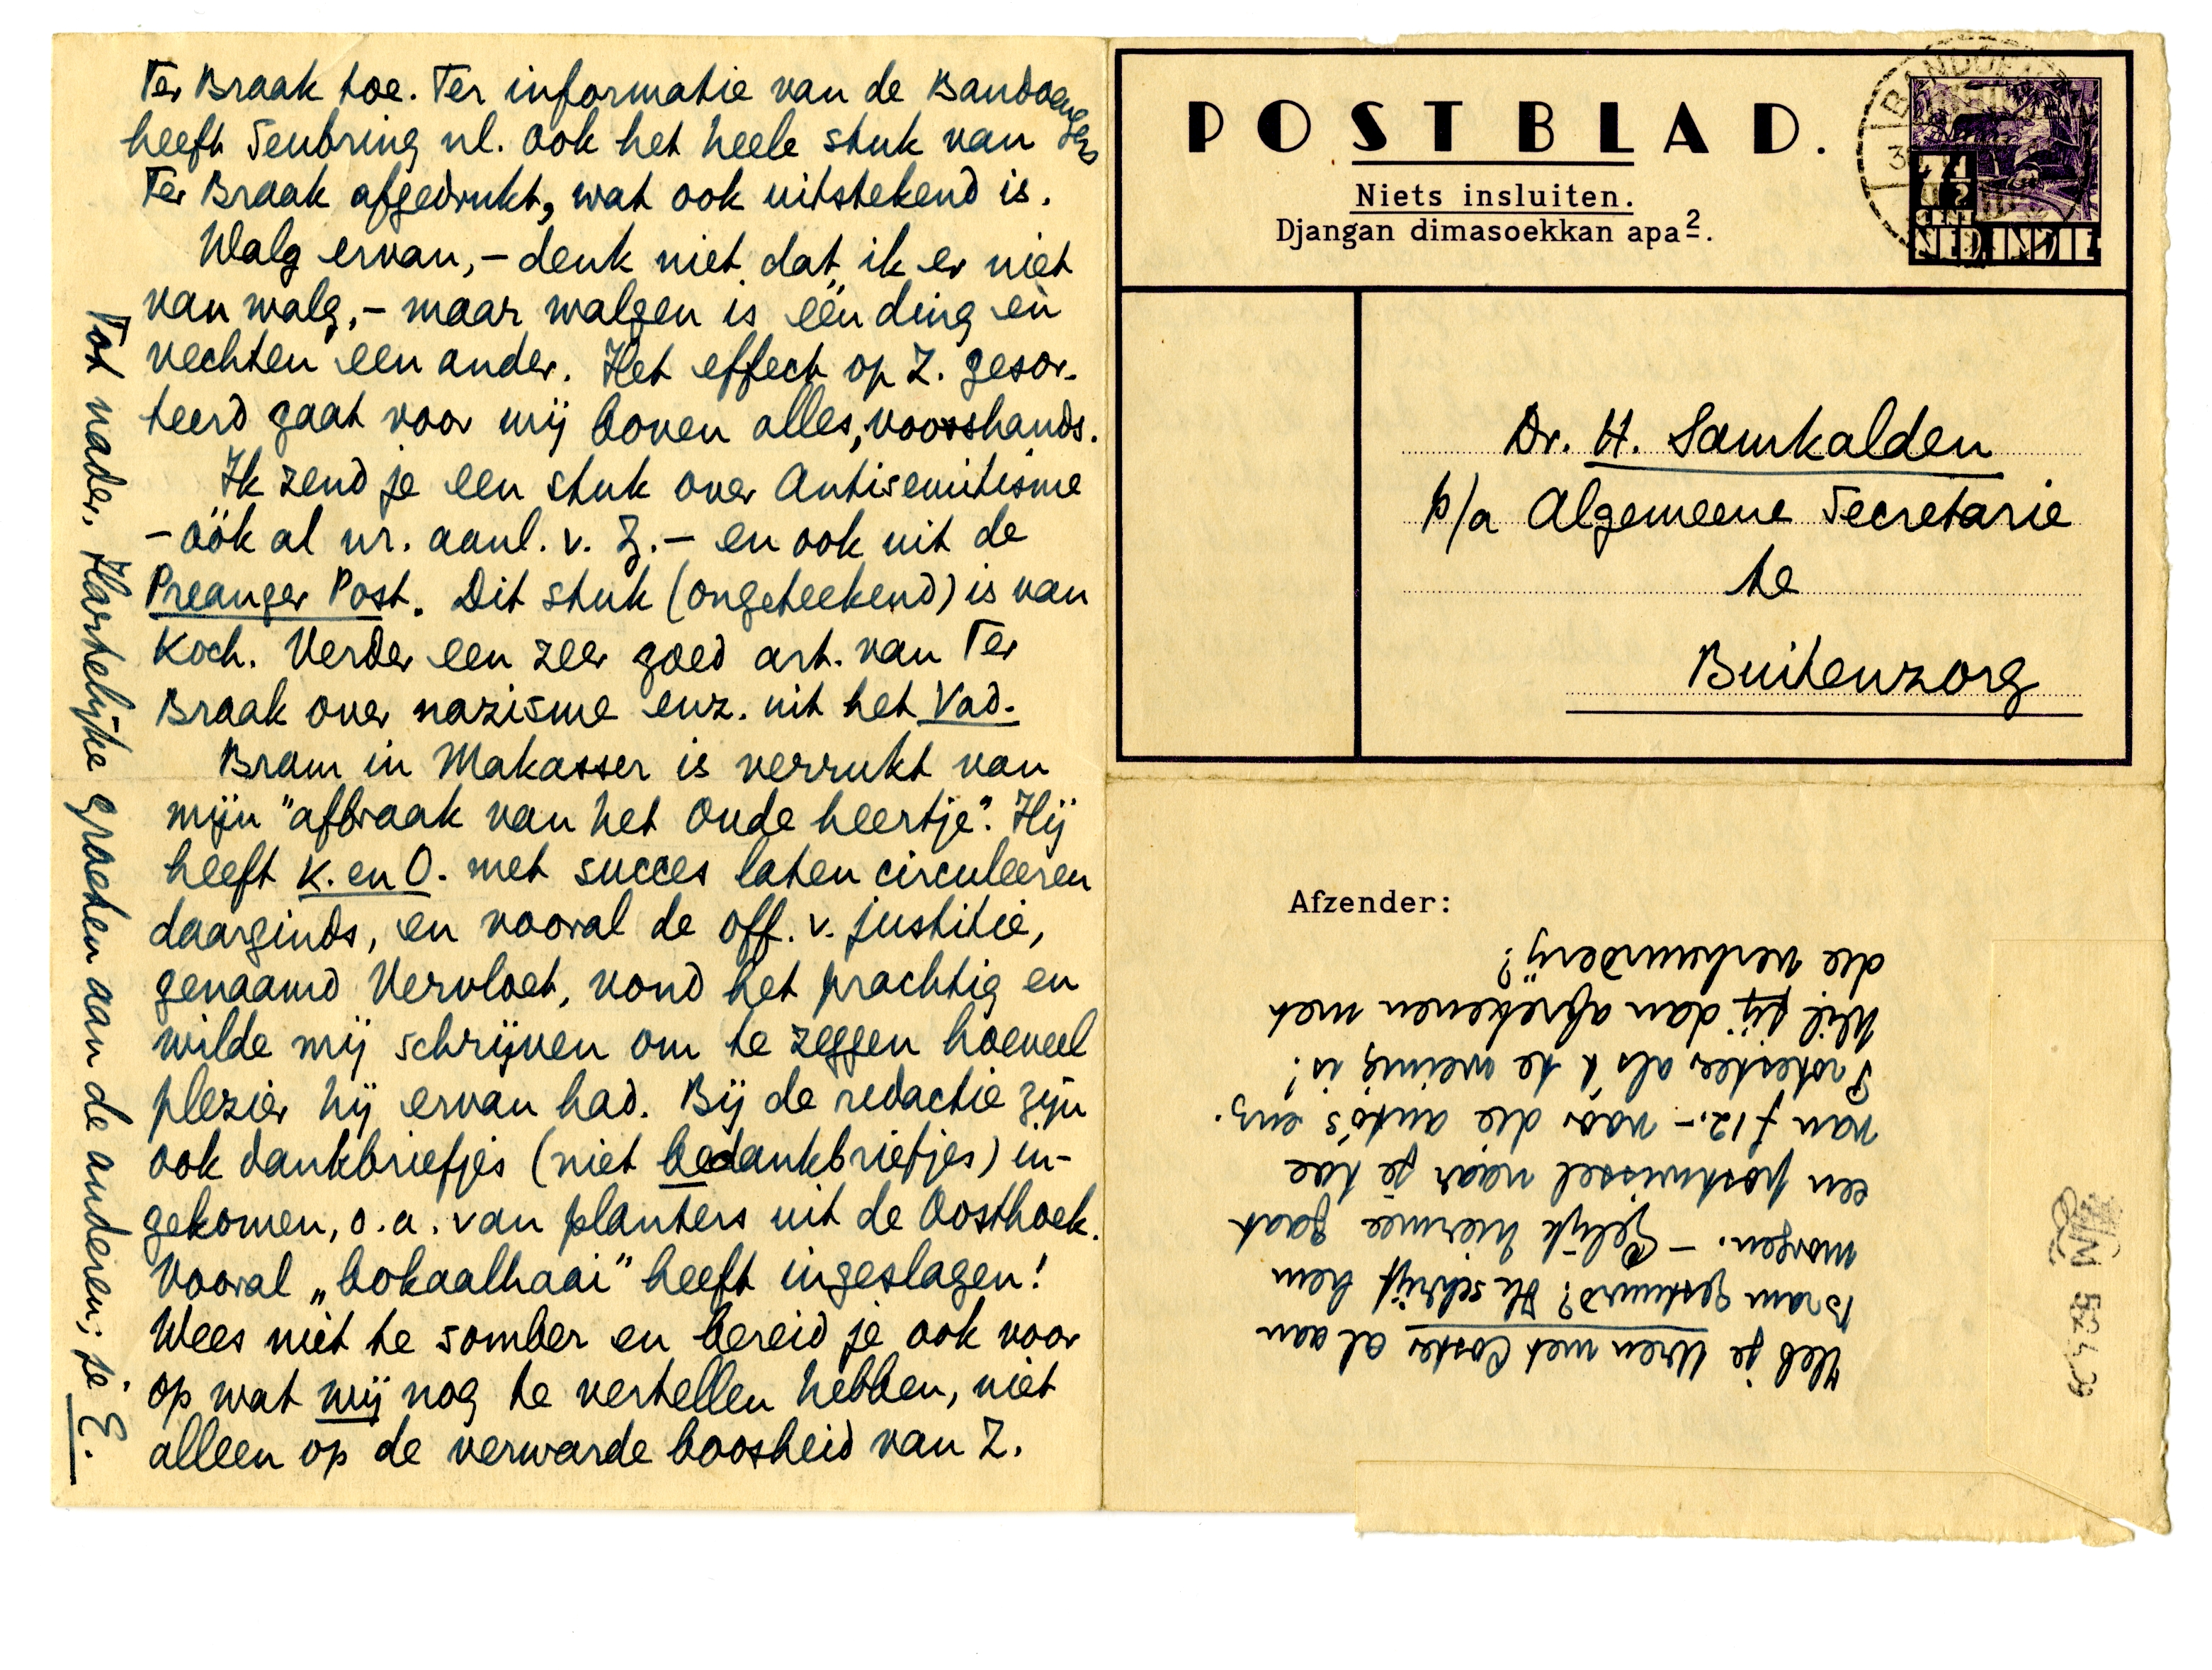 Ter Braak toe. Ter informatie van de Bandoengers
heeft Tenbring nl. ook het heele stuk van
Ter Braak afgedrukt, wat ook uitstekend is.
Walg ervan, – denk niet dat ik er niet
van walg, – maar walgen is één ding en
vechten een ander. Het effect op Z. gesor-
teerd gaat voor mij boven alles, voorshands.
Ik zend je een stuk over Antisemitisme
– óók al nr. aanl. v. Z. – en ook uit de
Preanger Post. Dit stuk (ongeteekend) is van
Koch. Verder een zeer goed art. van Ter
Braak over nazisme enz. uit het Vad.
Bram in Makasser is verrukt van
mijn "afbraak van het Oude heertje". Hij
heeft K. en O. met succes laten circuleeren
daarginds, en vooral de off. v. justitie,
genaamd Vervloet, vond het prachtig en
wilde mij schrijven om te zeggen hoeveel
plezier hij ervan had. Bij de redactie zijn
ook dankbriefjes (niet bedankbriefjes) in-
gekomen, o.a. van planters uit de Oosthoek.
Vooral „bokaalhaai" heeft ingeslagen!
Wees niet te somber en bereid je ook voor
op wat wij nog te vertellen hebben, niet
alleen op de verwarde boosheid van Z.
Tot nader. Hartelijke groeten aan de anderen; je E.
POSTBLAD.
Niets insluiten.
Djangan dimasoekkan apa2.
BANDOE
3
7 1/2
CENT
NED. INDIE
Dr. H. Samkalden
p/a Algemeene Secretarie
te
Buitenzorg
Afzender:
Heb je Uren met Coster al aan
Bram gestuurd? Ik schrijf hem
morgen. – Gelijk hiermee gaat
een postwissel náár je toe
van f 12.– vóór die auto's enz.
Protesteer als 't te weinig is!
Wil jij dan afrekenen met
die verhuurderij?